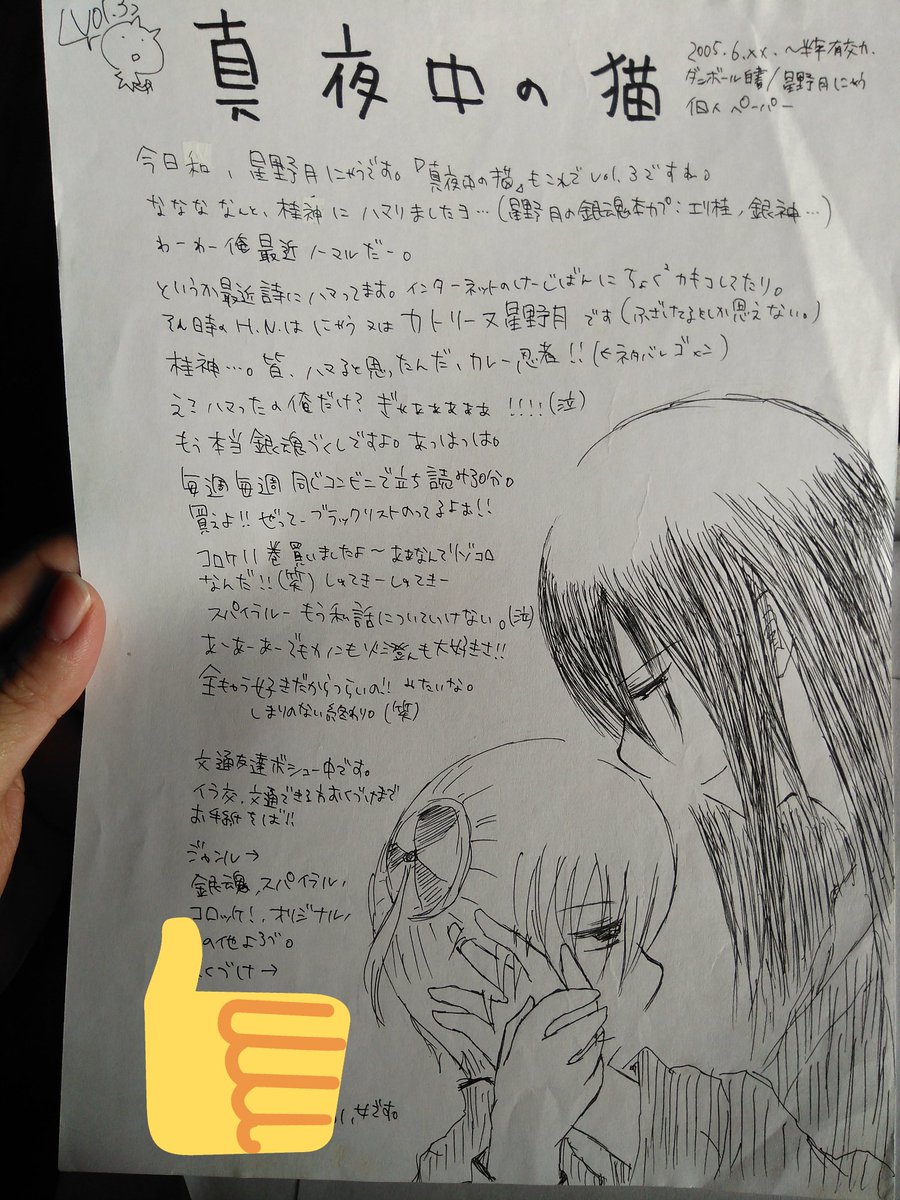 vol.3
真夜中の猫
2005.6.xx.〜半年有効力.
ダンボール白書/星野月にゃう
個人ペーパー
今日和、星野月にゃうです。『真夜中の猫』もこれでvol.3ですね。
なななななんと、桂神にハマりましたヨ…(星野月の銀魂本カプ:エリ桂,銀神…)
わーわー俺最近ノーマルだー。
というか最近詩にハマってます。インターネットのけーじばんにちょく²カキコしてたり。
そん時のH.N.はにゃう又はカトリーヌ星野月です(ふざけてるとしか思えない。)
桂神…。皆、ハマると思ったんだ、カレー忍者!!(←ネタバレゴメン)
え?ハマったの俺だけ?ぎゃぁぁぁぁぁ!!!!(泣)
もう本当銀魂づくしですよ。あっはっは。
毎週毎週同じコンビニで立ち読み30分。
買えよ!!ぜってーブラックリストのってるよぉ!!
コロケ11巻買いましたよ〜ああなんでトノコロ
なんだ!!(笑)しゅてきーしゅてきー
スパイラルーもう私話についていけない。(泣)
あーあーあーでもカノも火澄んも大好きさ!!
全もう好きだからつらいの!!みたいな。
しまりのない終わり。(笑)
文通友達ボシュー中です。
イラ交,文通できる方おくづけまで
お手紙をば!!
ジャンル→
銀魂,スパイラル,
コロッケ!,オリジナル,
の他よろず。
くづけ→
女です。